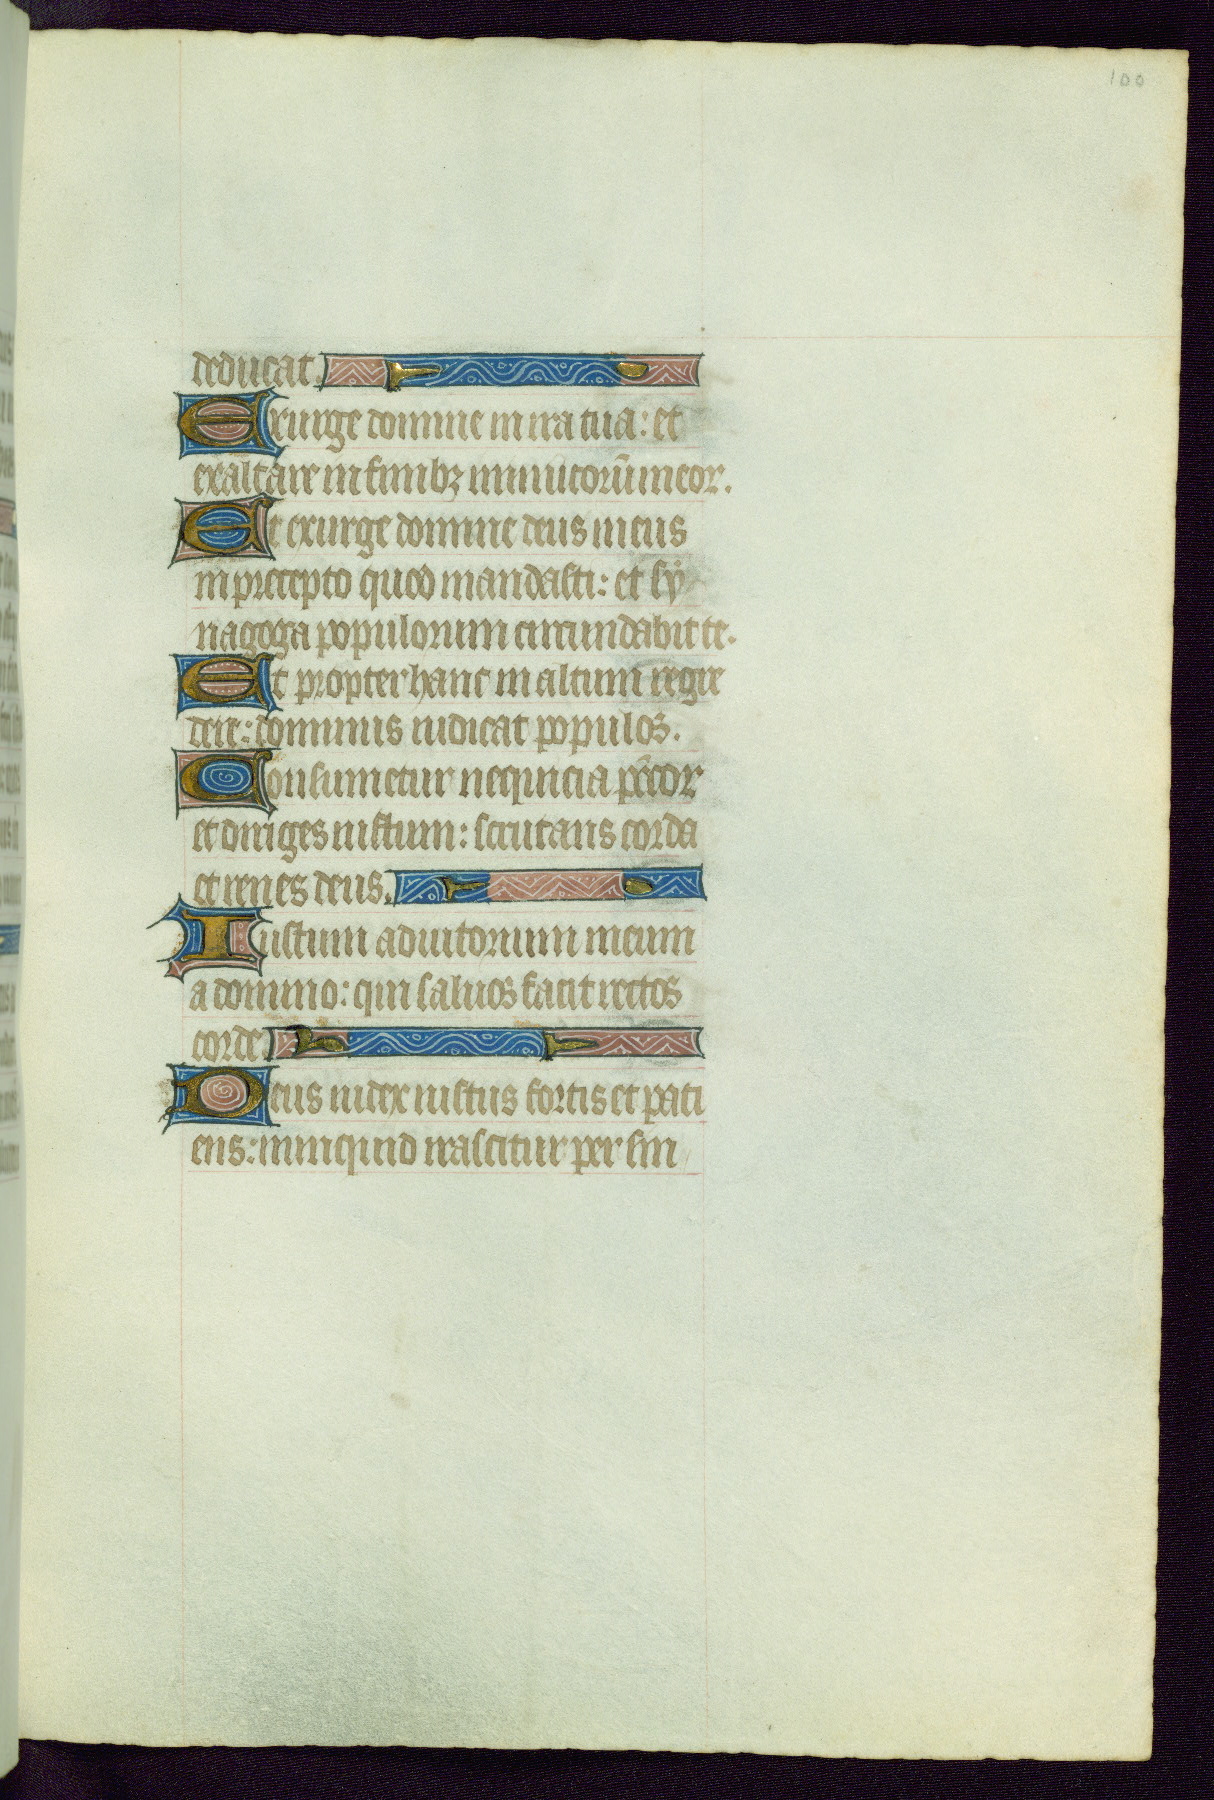 100
deducat.
Exurge domine in ira tua: et
exaltare in finibꝫ inimicorū meor.
Et exurge domine deus meus
in precepto quod mandasti: et sẏ
nagoga populorum circundabit te.
Et propter hanc in altum regre
dere: dominus iudicat populos.
Consumetur nequicia pc̄cor
et diriges iustum: scrutans corda
et renes deus.
Iustum adiutorium meum
a domino: qui saluos facit rectos
corde.
Deus iudex iustus fortis et pati
ens: nunquid irascitur per sin